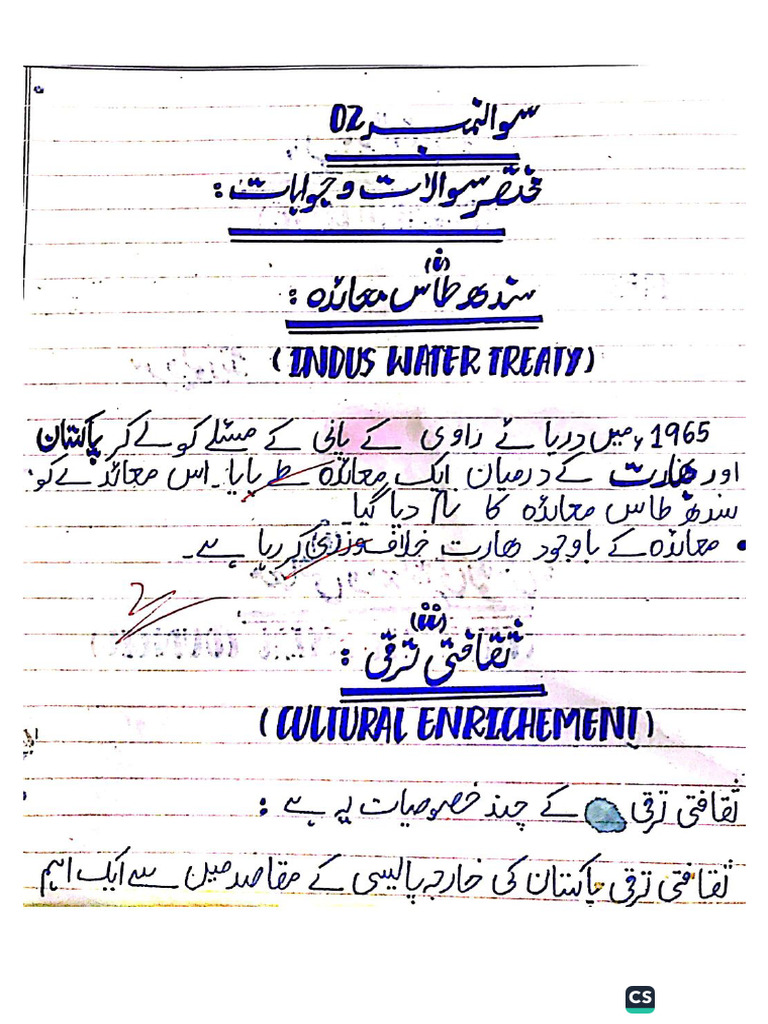 سوالنمبر 02
مختصر سوالات و جوابات :
(i)
سندھ طاس معائدہ :
(INDUS WATER TREATY)
1965ء میں دریائے راوی کے پانی کے مسئلے کو لے کر پاکستان
اور بھارت کے درمیان ایک معائدہ طے پایا۔ اس معائدے کو
سندھ طاس معائدہ کا نام دیا گیا
• معائدہ کے باوجود بھارت خلاف ورزی کر رہا ہے۔
2
(ii)
ثقافتی ترقی :
(CULTURAL ENRICHEMENT)
ثقافتی ترقی کے چند خصوصیات یہ ہے :
ثقافتی ترقی پاکستان کی خارجہ پالیسی کے مقاصد میں سے ایک اہم
CS